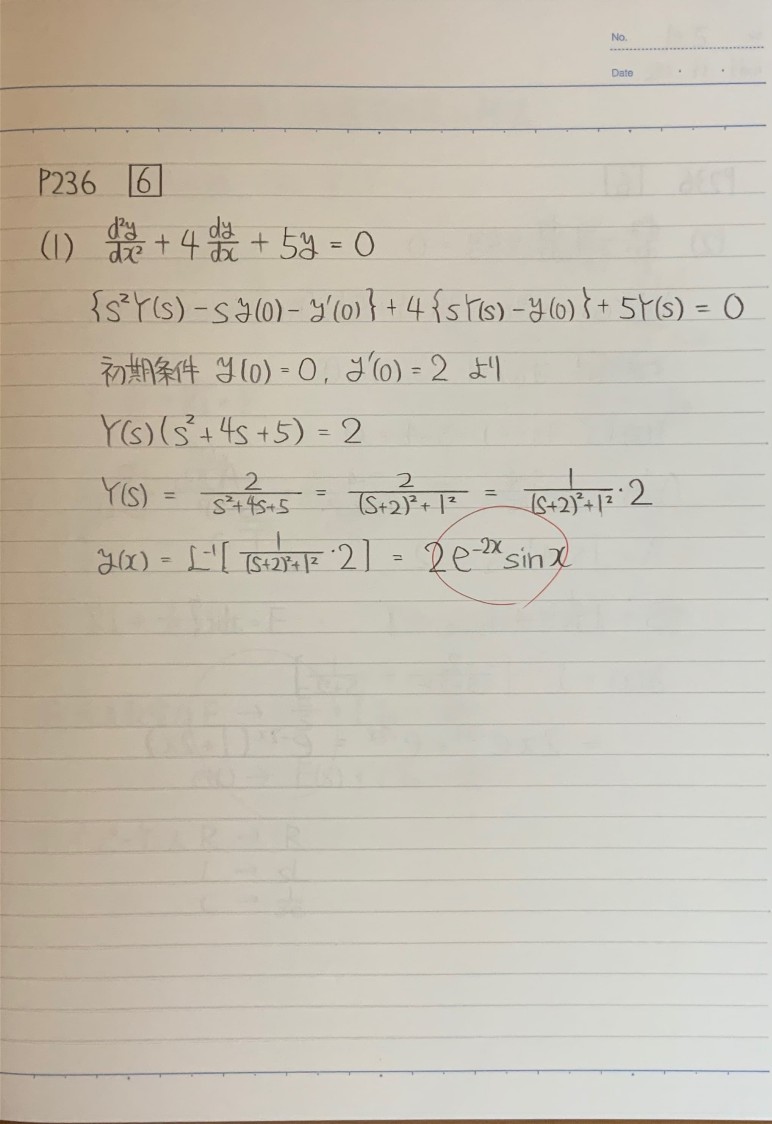 No.
Date
P236 6
(1) d²y/dx² + 4 dy/dx + 5y = 0
{s²Y(s) - sy(0) - y'(0)} + 4{sY(s) - y(0)} + 5Y(s) = 0
初期条件 y(0) = 0, y'(0) = 2 より
Y(s)(s² + 4s + 5) = 2
Y(s) = 2/(s²+4s+5) = 2/((s+2)²+1²) = 1/((s+2)²+1²)・2
y(x) = L⁻¹[1/((s+2)²+1²)・2] = 2e⁻²ˣ sin x